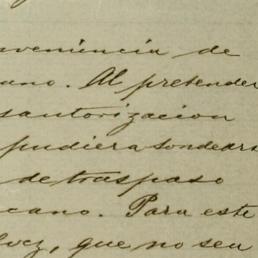 nveniencia de
ano. Al pretender
sautorizacion
pudiera sondear
de traspaso
cano. Para este
luez, que no sea